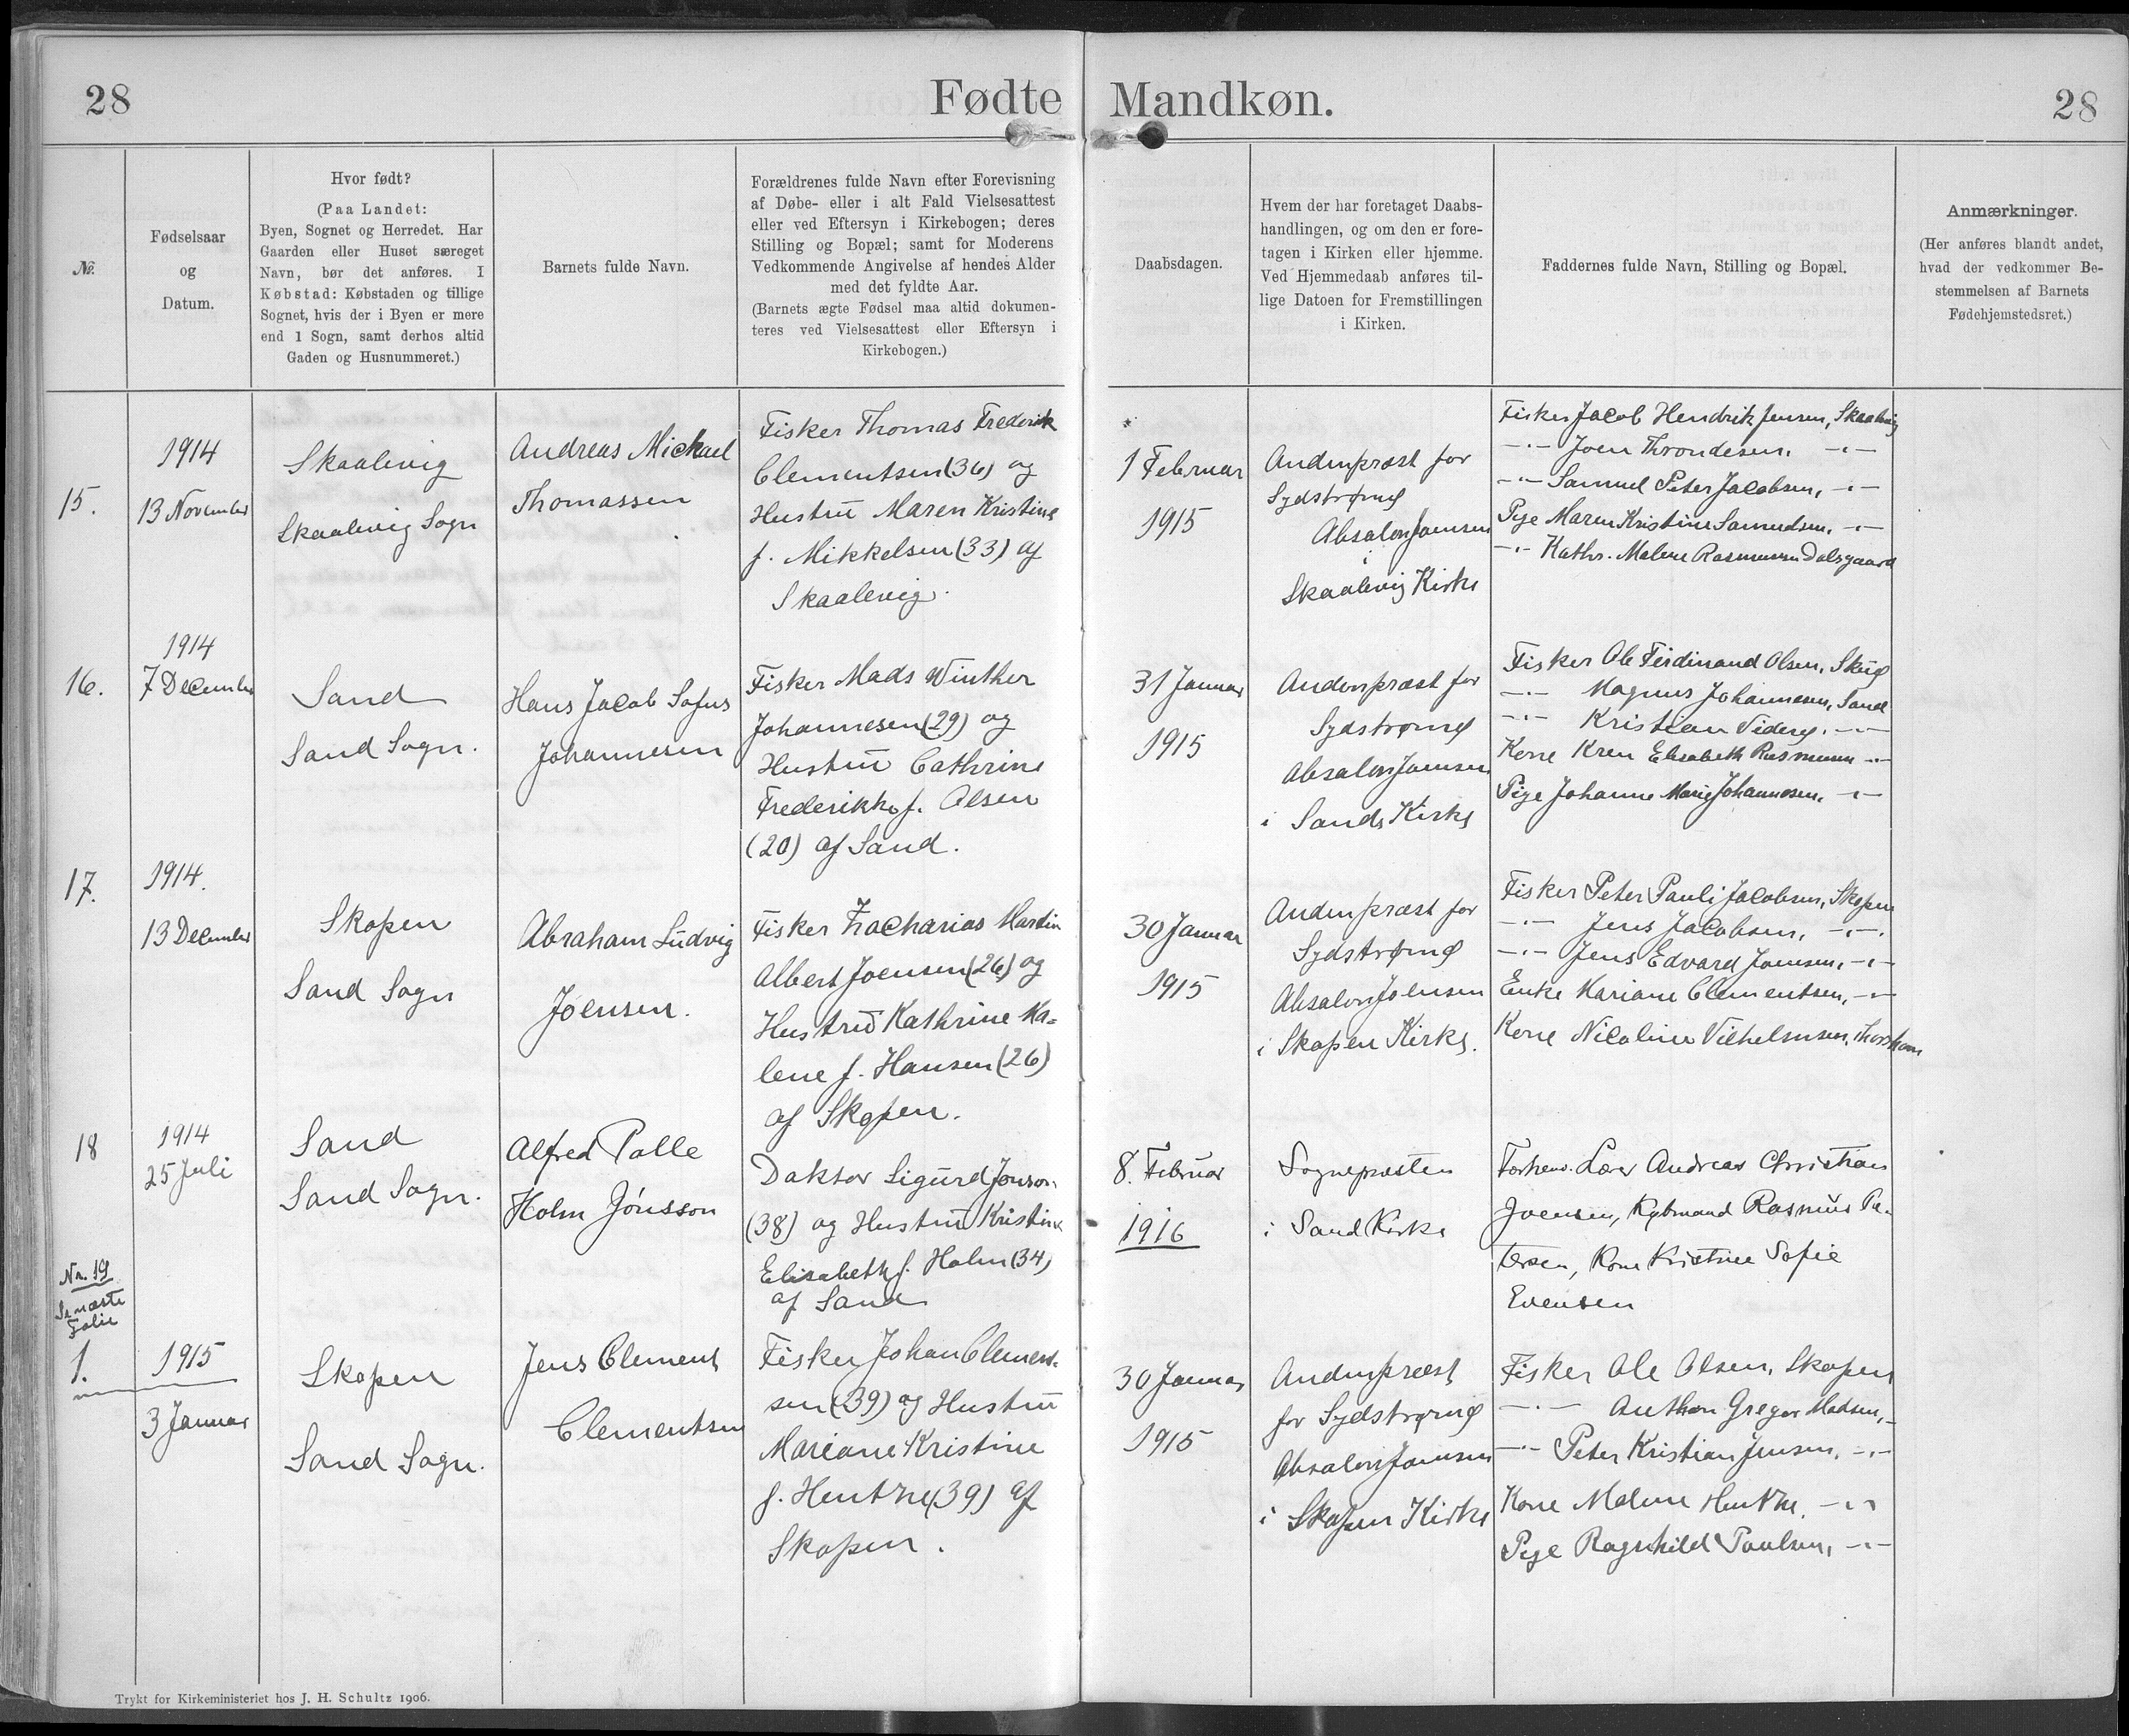 28
Fødte
Mandkøn.
28
№.
Fødselsaar
og
Datum.
Hvor født?
(Paa Landet:
Byen, Sognet og Herredet. Har
Gaarden eller Huset særeget
Navn, bør det anføres. I
Købstad: Købstaden og tillige
Sognet, hvis der i Byen er mere
end 1 Sogn, samt derhos altid
Gaden og Husnummeret.)
Barnets fulde Navn.
Forældrenes fulde Navn efter Forevisning
af Døbe- eller i alt Fald Vielsesattest
eller ved Eftersyn i Kirkebogen; deres
Stilling og Bopæl; samt for Moderens
Vedkommende Angivelse af hendes Alder
med det fyldte Aar.
(Barnets ægte Fødsel maa altid dokumen-
teres ved Vielsesattest eller Eftersyn i
Kirkebogen.)
Daabsdagen.
Hvem der har foretaget Daabs-
handlingen, og om den er fore-
tagen i Kirken eller hjemme.
Ved Hjemmedaab anføres til-
lige Datoen for Fremstillingen
i Kirken.
Faddernes fulde Navn, Stilling og Bopæl.
Anmærkninger.
(Her anføres blandt andet,
hvad der vedkommer Be-
stemmelsen af Barnets
Fødehjemstedsret.)
15.
1914
13 November
Skaalevig
Skaalevig Sogn
Andreas Michael
Thomassen
Fisker Thomas Frederik
Clementsen (36) og
Hustru Maren Kristine
f. Mikkelsen (33) af
Skaalevig.
1 Februar
1915
Andenpræst for
Sydstrømø
Absalon Joensen
i
Skaalevig Kirke
Fisker Jacob Hendrik Jensen, Skaalevig
-"- Joen Throndesen, -"-
-"- Samuel Peter Jacobsen, -"-
Pige Maren Kristine Samuelsen, -"-
-"- Kathr. Malene Rasmussen Dalsgaard
16.
1914
7 December
Sand
Sand Sogn.
Hans Jacob Sofus
Johannesen
Fisker Mads Winther
Johannesen (29) og
Hustru Cathrine
Frederikke f. Olsen
(20) af Sand.
31 Januar
1915
Andenpræst for
Sydstrømø
Absalon Joensen
i Sands Kirke
Fisker Ole Ferdinand Olsen, Skuø
-"- Magnus Johannesen, Sand
-"- Kristian Viderø, -"-
Kone Elisabeth Rasmussen -"-
Pige Johanne Marie Johannesen, -"-
17.
1914.
13 December
Skopen
Sand Sogn
Abraham Ludvig
Joensen.
Fisker Zacharias Martin
Albert Joensen (26) og
Hustru Kathrine Ma-
lene f. Hansen (26)
af Skopen.
30 Januar
1915
Andenpræst for
Sydstrømø
Absalon Joensen
i Skopen Kirke.
Fisker Peter Pauli Jacobsen, Skopen
-"- Jens Jacobsen, -"-
-"- Jens Edvard Joensen, -"-
Enke Mariane Clementsen, -"-
Kone Nicoline Vilhelmsen, Thorshavn
18
1914
25 Juli
Sand
Sand Sogn.
Alfred Palle
Holm Jónsson
Doktor Sigurd Jónsson
(38) og Hustru Kristine
Elisabeth f. Holm (34)
af Sand
8. Februar
1916
Sognepræsten
i Sand Kirke
Forhenv. Lær Andreas Christian
Joensen, Købmand Rasmus Pe-
tersen, Kone Kristine Sofie
Evensen
Nr. 19
Se næste
Folie
1.
1915
3 Januar
Skopen
Sand Sogn.
Jens Clement
Clementsen
Fisker Johan Clement-
sen (39) og Hustru
Mariane Kristine
f. Hentze (39) af
Skopen.
30 Januar
1915
Andenpræst
for Sydstrømø
Absalon Joensen
i Skopen Kirke
Fisker Ole Olsen, Skopen
-"- Anthon Gregor Madsen, -
-"- Peter Kristian Jensen, -"-
Kone Malene Hentze, -"-
Pige Ragnhild Poulsen, -"-
Trykt for Kirkeministeriet hos J. H. Schultz 1906.